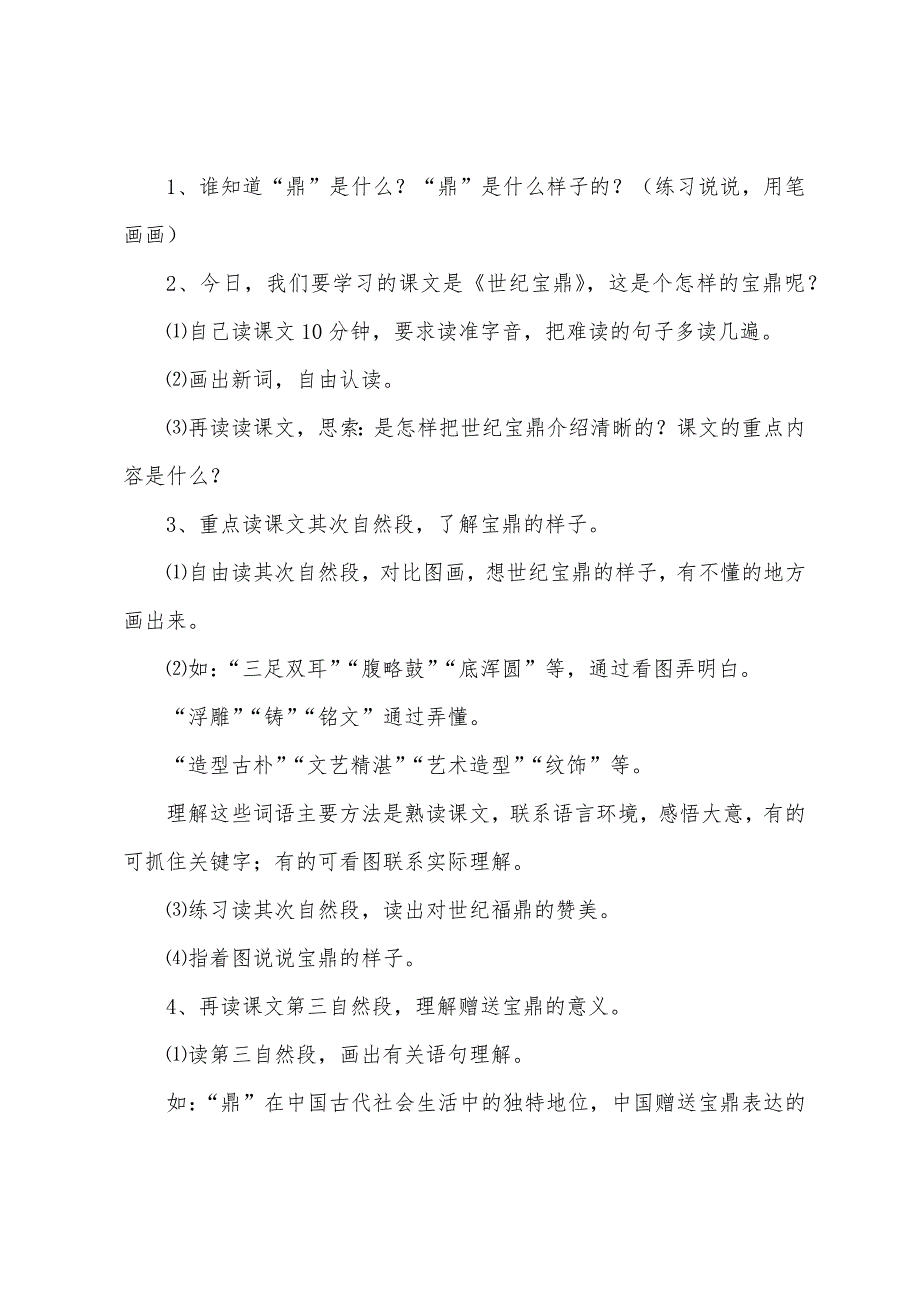 1、谁知道“鼎”是什么？“鼎”是什么样子的？（练习说说，用笔
画画）
2、今日，我们要学习的课文是《世纪宝鼎》，这是个怎样的宝鼎呢？
⑴自己读课文10分钟，要求读准字音，把难读的句子多读几遍。
⑵画出新词，自由认读。
⑶再读读课文，思索：是怎样把世纪宝鼎介绍清晰的？课文的重点内
容是什么？
3、重点读课文其次自然段，了解宝鼎的样子。
⑴自由读其次自然段，对比图画，想世纪宝鼎的样子，有不懂的地方
画出来。
⑵如：“三足双耳”“腹略鼓”“底浑圆”等，通过看图弄明白。
“浮雕”“铸”“铭文”通过弄懂。
“造型古朴”“文艺精湛”“艺术造型”“纹饰”等。
理解这些词语主要方法是熟读课文，联系语言环境，感悟大意，有的
可抓住关键字；有的可看图联系实际理解。
⑶练习读其次自然段，读出对世纪福鼎的赞美。
⑷指着图说说宝鼎的样子。
4、再读课文第三自然段，理解赠送宝鼎的意义。
⑴读第三自然段，画出有关语句理解。
如：“鼎”在中国古代社会生活中的独特地位，中国赠送宝鼎表达的